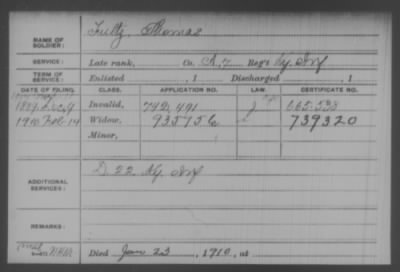 NAME OF SOLDIER: Fultz, Thomas
SERVICE: Late rank, Co. A, 7 Reg't Ky. Inf
TERM OF SERVICE: Enlisted , 1 Discharged , 1
DATE OF FILING. CLASS. APPLICATION NO. LAW. CERTIFICATE NO.
1889 Dec. 9 Invalid, 742,491 665.538
1910 Feb 14 Widow, 935756 739320
Minor,
ADDITIONAL SERVICES: D. 22 Ky. Inf
REMARKS:
Died Jan 23, 1910, at